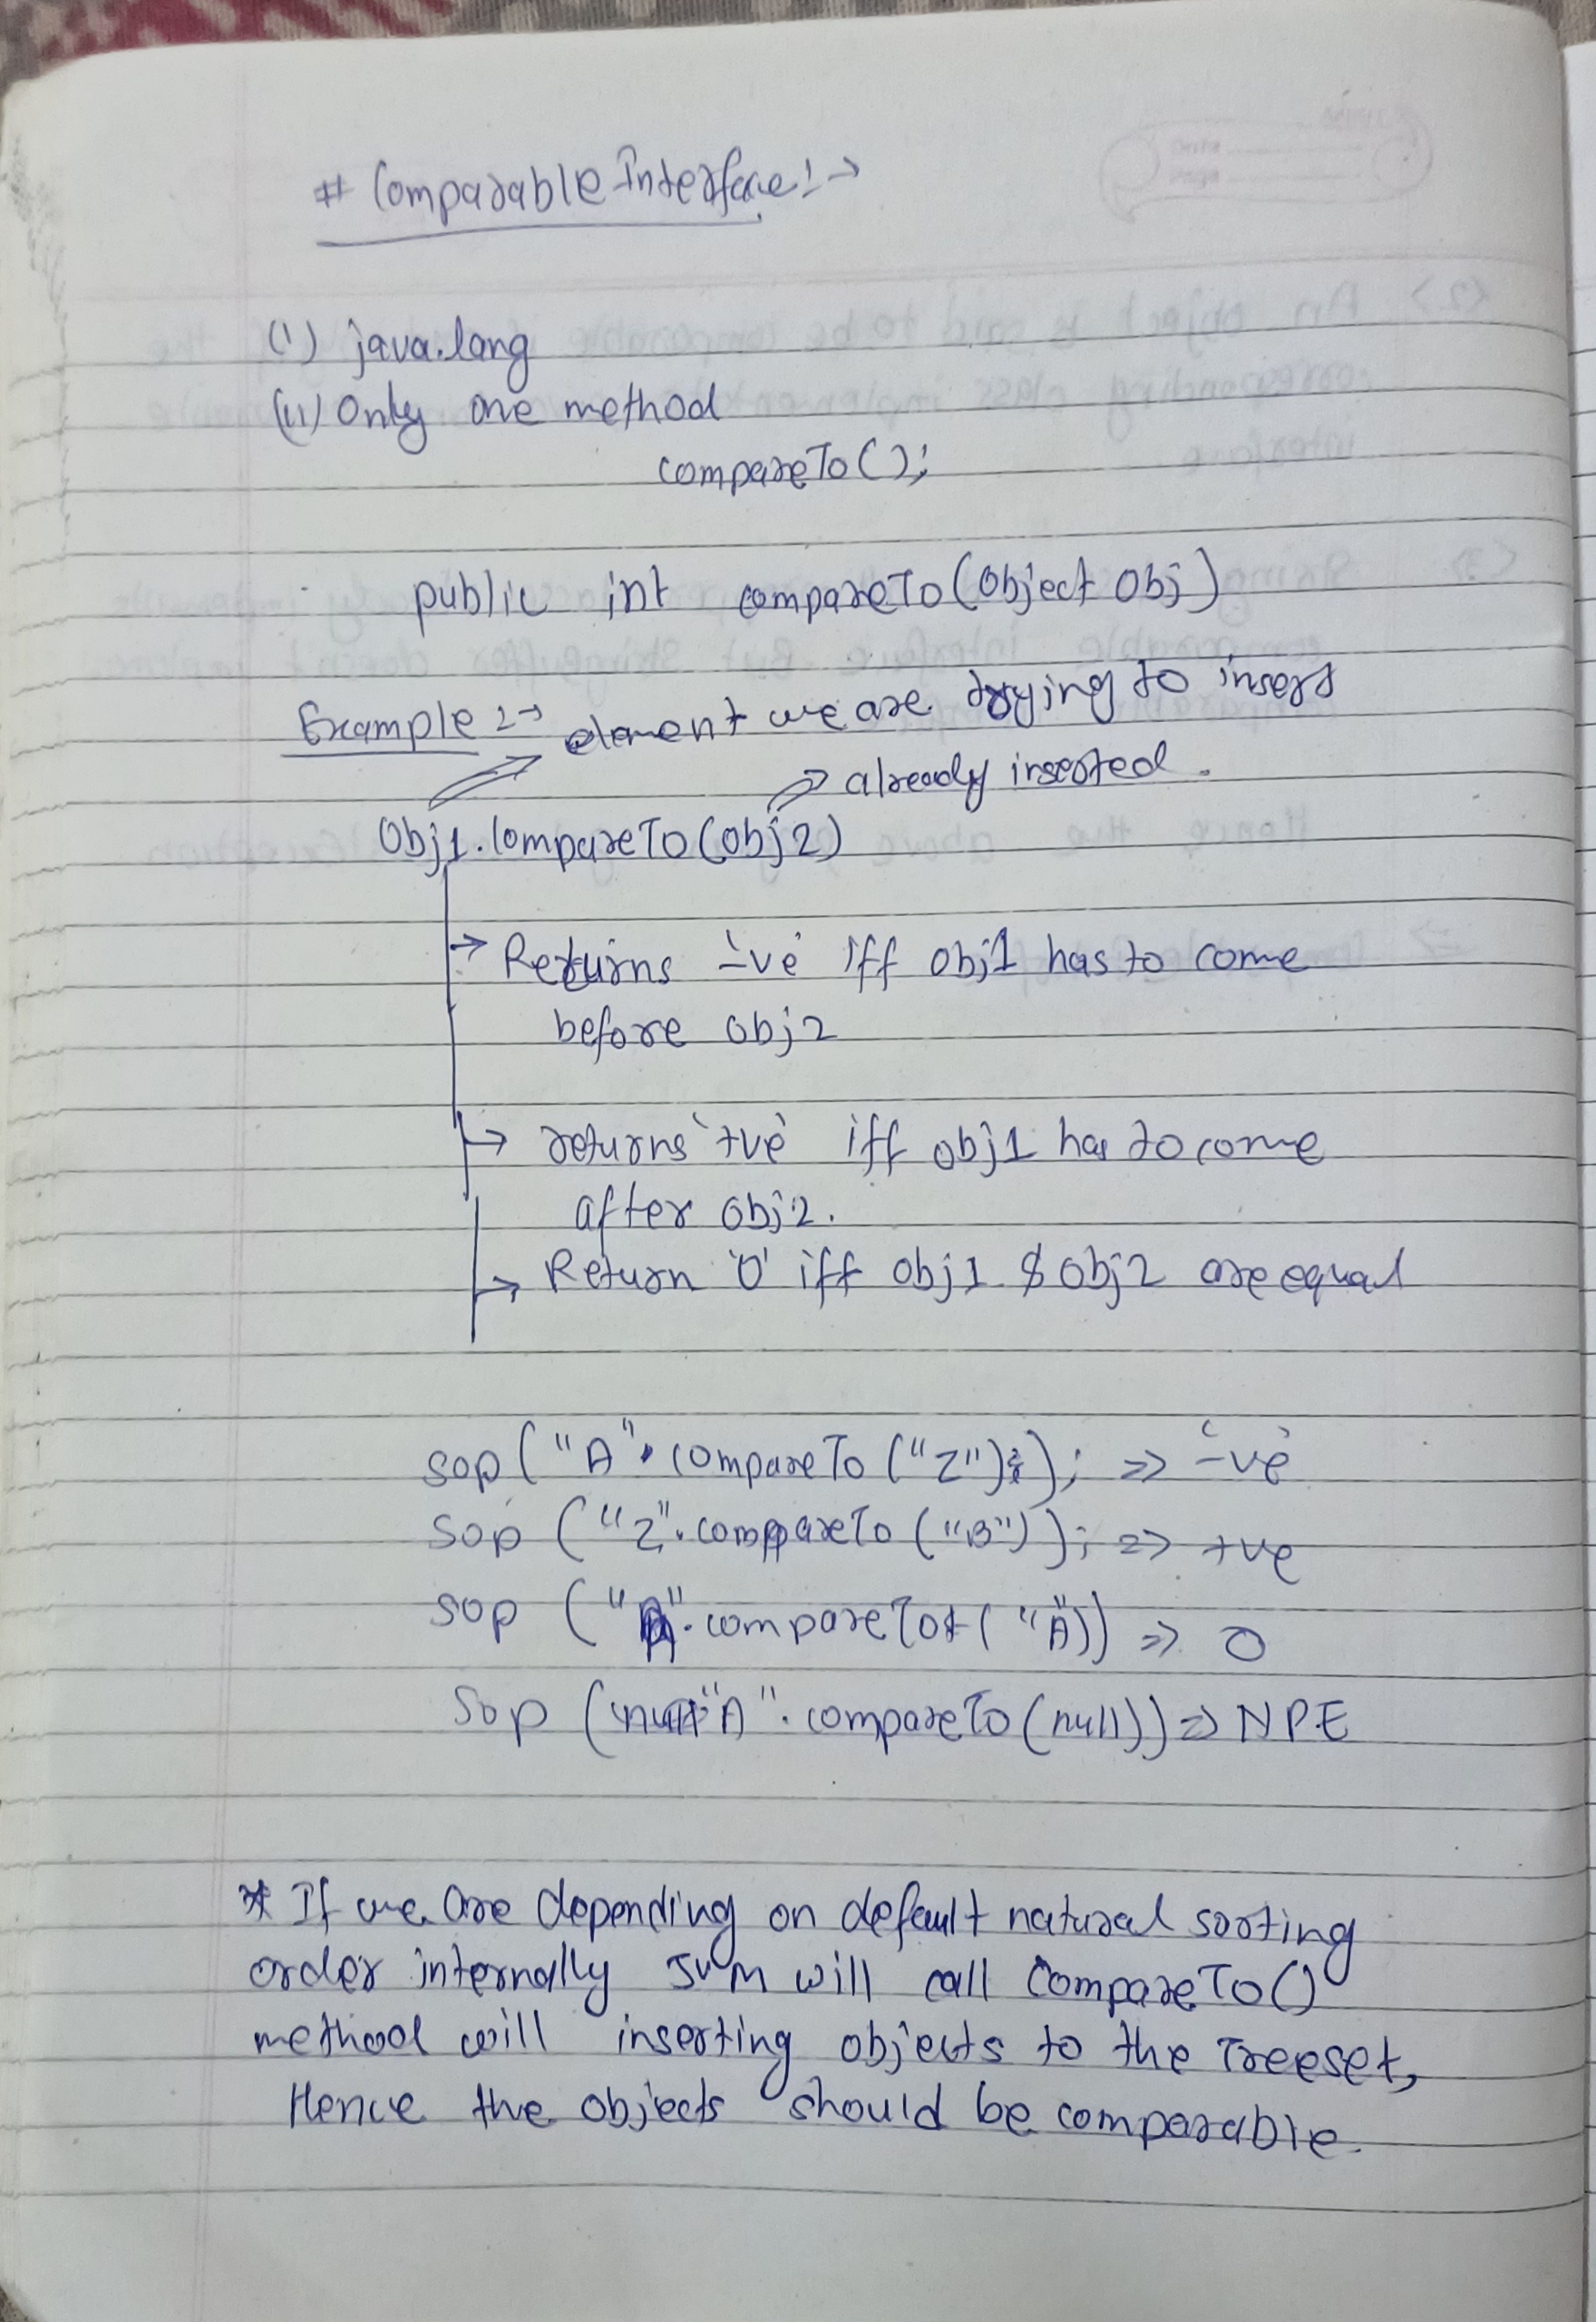 # Comparable Interface:→
(i) java.lang
(ii) Only one method
compareTo();
public int compareTo(Object Obj)
Example :→ element we are trying to insert
already inserted.
Obj1.compareTo(obj2)
→ Returns '-ve' iff obj1 has to come
before obj2
→ returns '+ve' iff obj1 has to come
after obj2.
→ Return '0' iff obj1 & obj2 are equal
sop("A".compareTo("Z")); => '-ve'
sop ("Z".compareTo("B")); => +ve
sop ("A".compareTo("A")) => 0
sop ("A".compareTo(null)) => NPE
* If we are depending on default natural sorting
order internally JVM will call CompareTo()
method will inserting objects to the Treeset,
Hence the objects should be comparable.